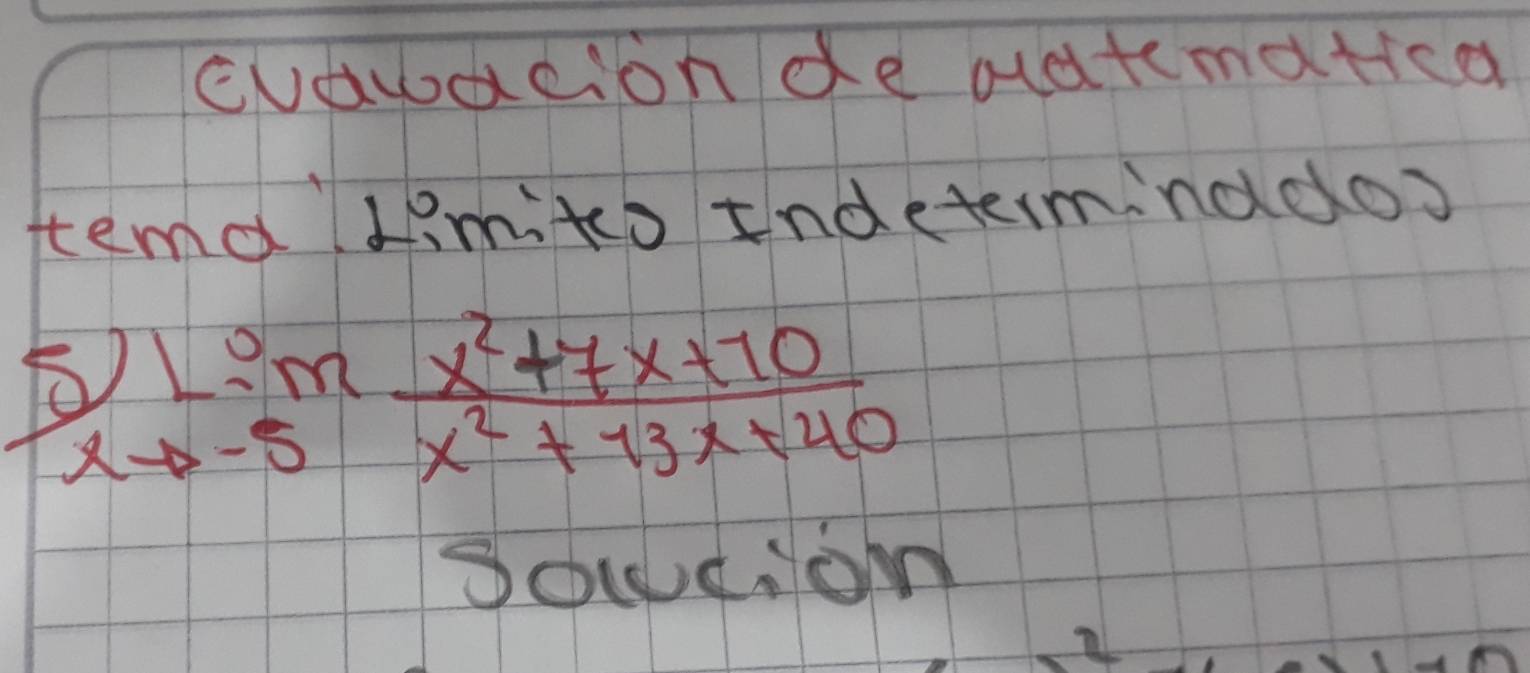 Evaluación de matematica
tema: Limites Indeterminados
5) Lim x²+7x+10
x→-5 x²+13x+40
Solución